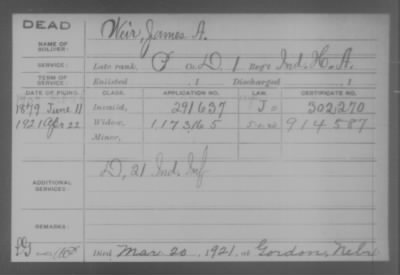 DEAD
NAME OF SOLDIER: Weir, James A.
SERVICE: Late rank, P Co. D, 1 Reg't Ind. H. A.
TERM OF SERVICE: Enlisted , 1 Discharged , 1
DATE OF FILING. CLASS. APPLICATION NO. LAW. CERTIFICATE NO.
1879 June 11 Invalid, 291637 J 302270
1921 Apr 22 Widow, 1173165 914587
Minor,
ADDITIONAL SERVICES: D, 21 Ind. Inf
REMARKS:
Died Mar 20, 1921, at Gordon, Nebr